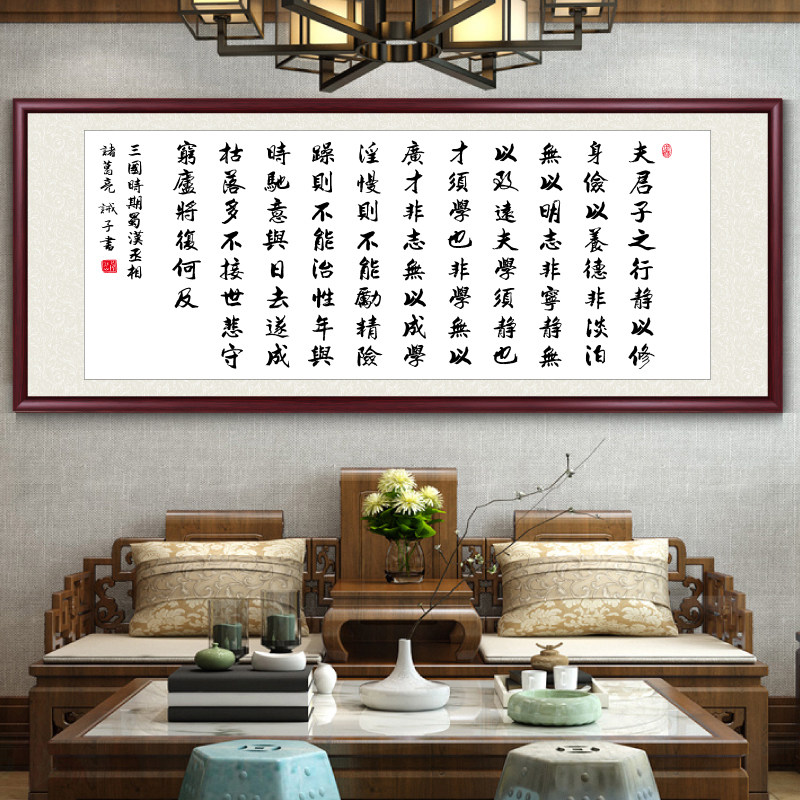 夫君子之行静以修
身儉以養德非淡泊
無以明志非寧静無
以致遠夫學須静也
才須學也非學無以
廣才非志無以成學
淫慢則不能勵精險
躁則不能治性年與
時馳意與日去遂成
枯落多不接世悲守
窮廬將復何及
三國時期蜀漢丞相
諸葛亮 誡子書